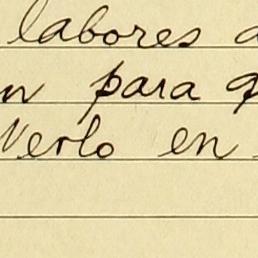 labores
para
Verlo en